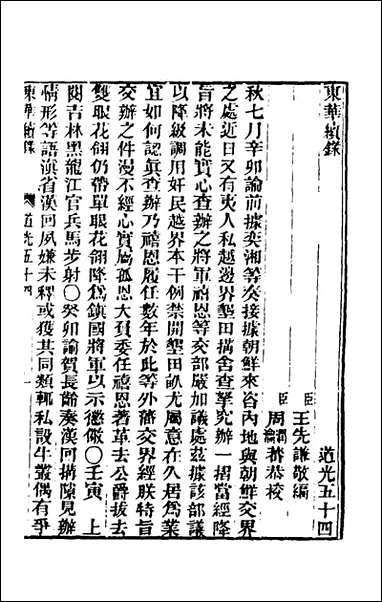 東華續錄　道光五十四
臣王先謙敬編
臣周潤瀹蕃恭校
秋七月辛卯諭前據奕湘等奏接據朝鮮來咨內地與朝鮮交界
之處近日又有夷人私越邊界墾田搆舍查拏究辦一摺當經降
旨將未能實心查辦之將軍禧恩等交部嚴加議處茲據該部議
以降級調用奸民越界本干例禁開墾田畝尤屬意在久居爲業
宜如何認眞查辦乃禧恩履任數年於此等外藩交界經朕特旨
交辦之件漫不經心實屬孤恩大負委任禧恩著革去公爵拔去
雙眼花翎仍帶單眼花翎降爲鎮國將軍以示懲儆〇壬寅　上
閱吉林黑龍江官兵馬步射〇癸卯諭賀長齡奏漢回搆隙見辦
情形等語滇省漢回夙嫌未釋或獲其同類輒私設牛叢偶有爭
東華續錄　道光五十四　一